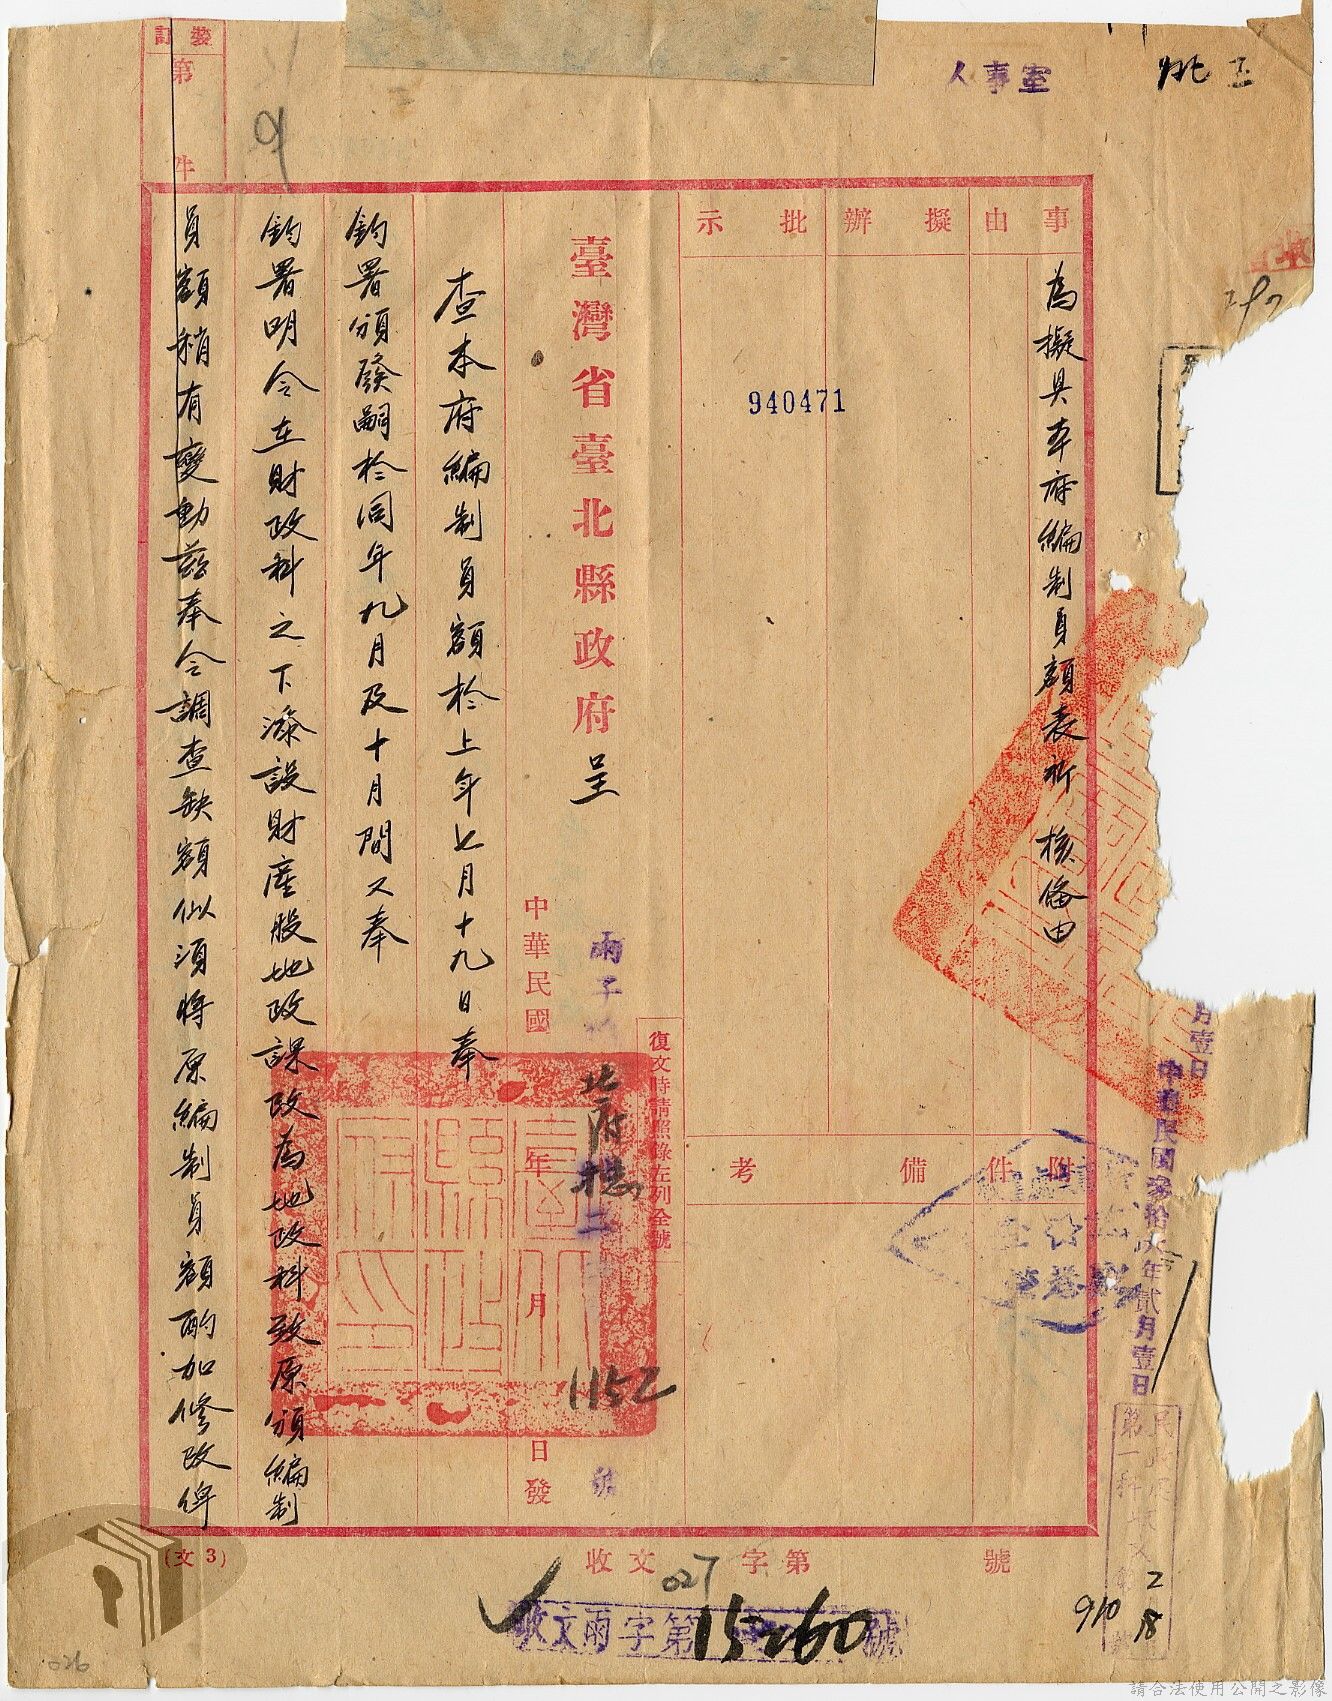 裝訂
第
件
人事室
事由
擬辦
批示
為擬具本府編制員額表祈 核備由
940471
附件
備考
復文時請照錄左列全號
臺灣省臺北縣政府呈
北府機二
1152
號
中華民國 年 月 日發
查本府編制員額於上年七月十九日奉
鈞署頒發嗣於同年九月及十月間又奉
鈞署明令在財政科之下添設財產股地政課改為地政科致原頒編制
員額稍有變動茲奉令調查缺額似須將原編制員額酌加修改俾
(文3)
收文 字第 號
027
收文雨字第15260號
月壹日
中華民國叁拾六年貳月壹日
第一科收文
2
18
910
026
請合法使用公開之影像